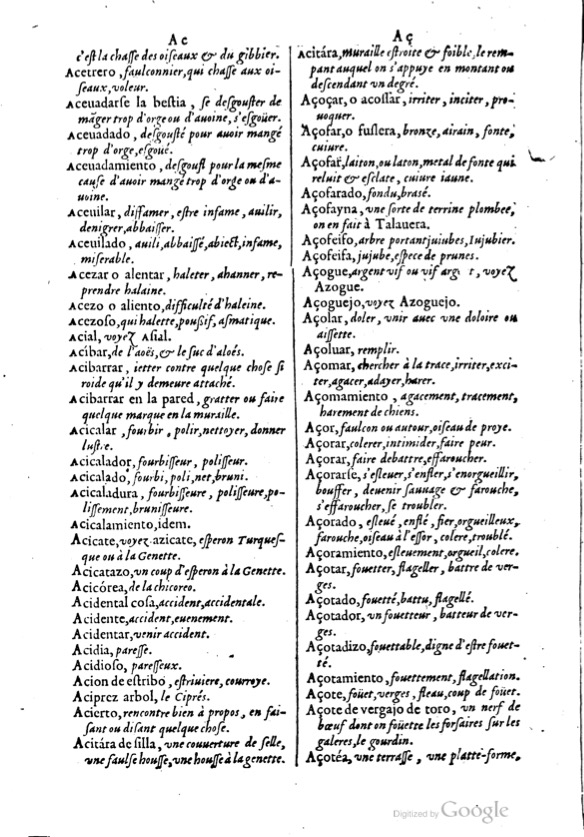 Ac
c'est la chasse des oiseaux & du gibbier.
Acetrero, faulconnier, qui chasse aux oi-
seaux, voleur.
Aceuadarse la bestia, se desgouster de
mãger trop d'orge ou d'auoine, s'esgoüer.
Aceuadado, desgousté pour auoir mangé
trop d'orge, esgoué.
Aceuadamiento, desgoust pour la mesme
cause d'auoir mangé trop d'orge ou d'a-
uoine.
Aceuilar, diffamer, estre infame, auilir,
denigrer, abbaisser.
Aceuilado, auili, abbaissé, abiect, infame,
miserable.
Acezar o alentar, haleter, ahanner, re-
prendre halaine.
Acezo o aliento, difficulté d'haleine.
Acezoso, qui halette, poußif, asmatique.
Acial, voyez Asial.
Acíbar, de l'aoës, & le suc d'aloés.
Acibarrar, ietter contre quelque chose si
roide qu'il y demeure attaché.
Acibarrar en la pared, gratter ou faire
quelque marque en la muraille.
Acicalar, fourbir, polir, nettoyer, donner
lustre.
Acicalador, fourbisseur, polisseur.
Acicalado, fourbi, poli, net, bruni.
Acicaladura, fourbisseure, polisseure, po-
lissement, brunisseure.
Acicalamiento, idem.
Acicate, voyez azicate, esperon Turques-
que ou à la Genette.
Acicatazo, vn coup d'esperon à la Genette.
Acicórea, de la chicoreo.
Acidental cosa, accident, accidentale.
Acidente, accident, euenement.
Acidentar, venir accident.
Acidia, paresse.
Acidioso, paresseux.
Acion de estribo, estriuiere, courroye.
Aciprez arbol, le Ciprés.
Acierto, rencontre bien à propos, en fai-
sant ou disant quelque chose.
Acitára de silla, vne couuerture de selle,
vne faulse housse, vne housse à la genette.
Aç
Acitára, muraille estroite & foible, le rem-
pant auquel on s'appuye en montant ou
descendant vn degré.
Açoçar, o acossar, irriter, inciter, pro-
uoquer.
Açofar, o fuslera, bronze, airain, fonte,
cuiure.
Açofar, laiton, ou laton, metal de fonte qui
reluit & esclate, cuiure iaune.
Açofarado, fondu, brasé.
Açofayna, vne sorte de terrine plombee,
on en fait à Talauera.
Açofeifo, arbre portant iuiubes, Iuiubier.
Açofeifa, jujube, espece de prunes.
Açogue, argent vif ou vif arg t, voyez
Azogue.
Açoguejo, voyez Azoguejo.
Açolar, doler, vnir auec vne doloire ou
aissette.
Açoluar, remplir.
Açomar, chercher à la trace, irriter, exci-
ter, agacer, adayer, harer.
Açomamiento, agacement, tracement,
harement de chiens.
Açor, faulcon ou autour, oiseau de proye.
Açorar, colerer, intimider, faire peur.
Açorar, faire debattre, effaroucher.
Açorarse, s'esleuer, s'enfler, s'enorgueillir,
bouffer, deuenir sauuage & farouche,
s'effaroucher, se troubler.
Açorado, esleué, enflé, fier, orgueilleux,
farouche, oiseau à l'essor, colere, troublé.
Açoramiento, esleuement, orgueil, colere.
Açotar, fouetter, flageller, battre de ver-
ges.
Açotado, fouetté, battu, flagellé.
Açotador, vn fouetteur, batteur de ver-
ges.
Açotadizo, fouettable, digne d'estre fouet-
té.
Açotamiento, fouettement, flagellation.
Açote, foüet, verges, fleau, coup de foüet.
Açote de vergajo de toro, vn nerf de
bœuf dont on foüette les forsaires sur les
galeres, le gourdin.
Açotéa, vne terrasse, vne platte-forme,
Digitized by Google